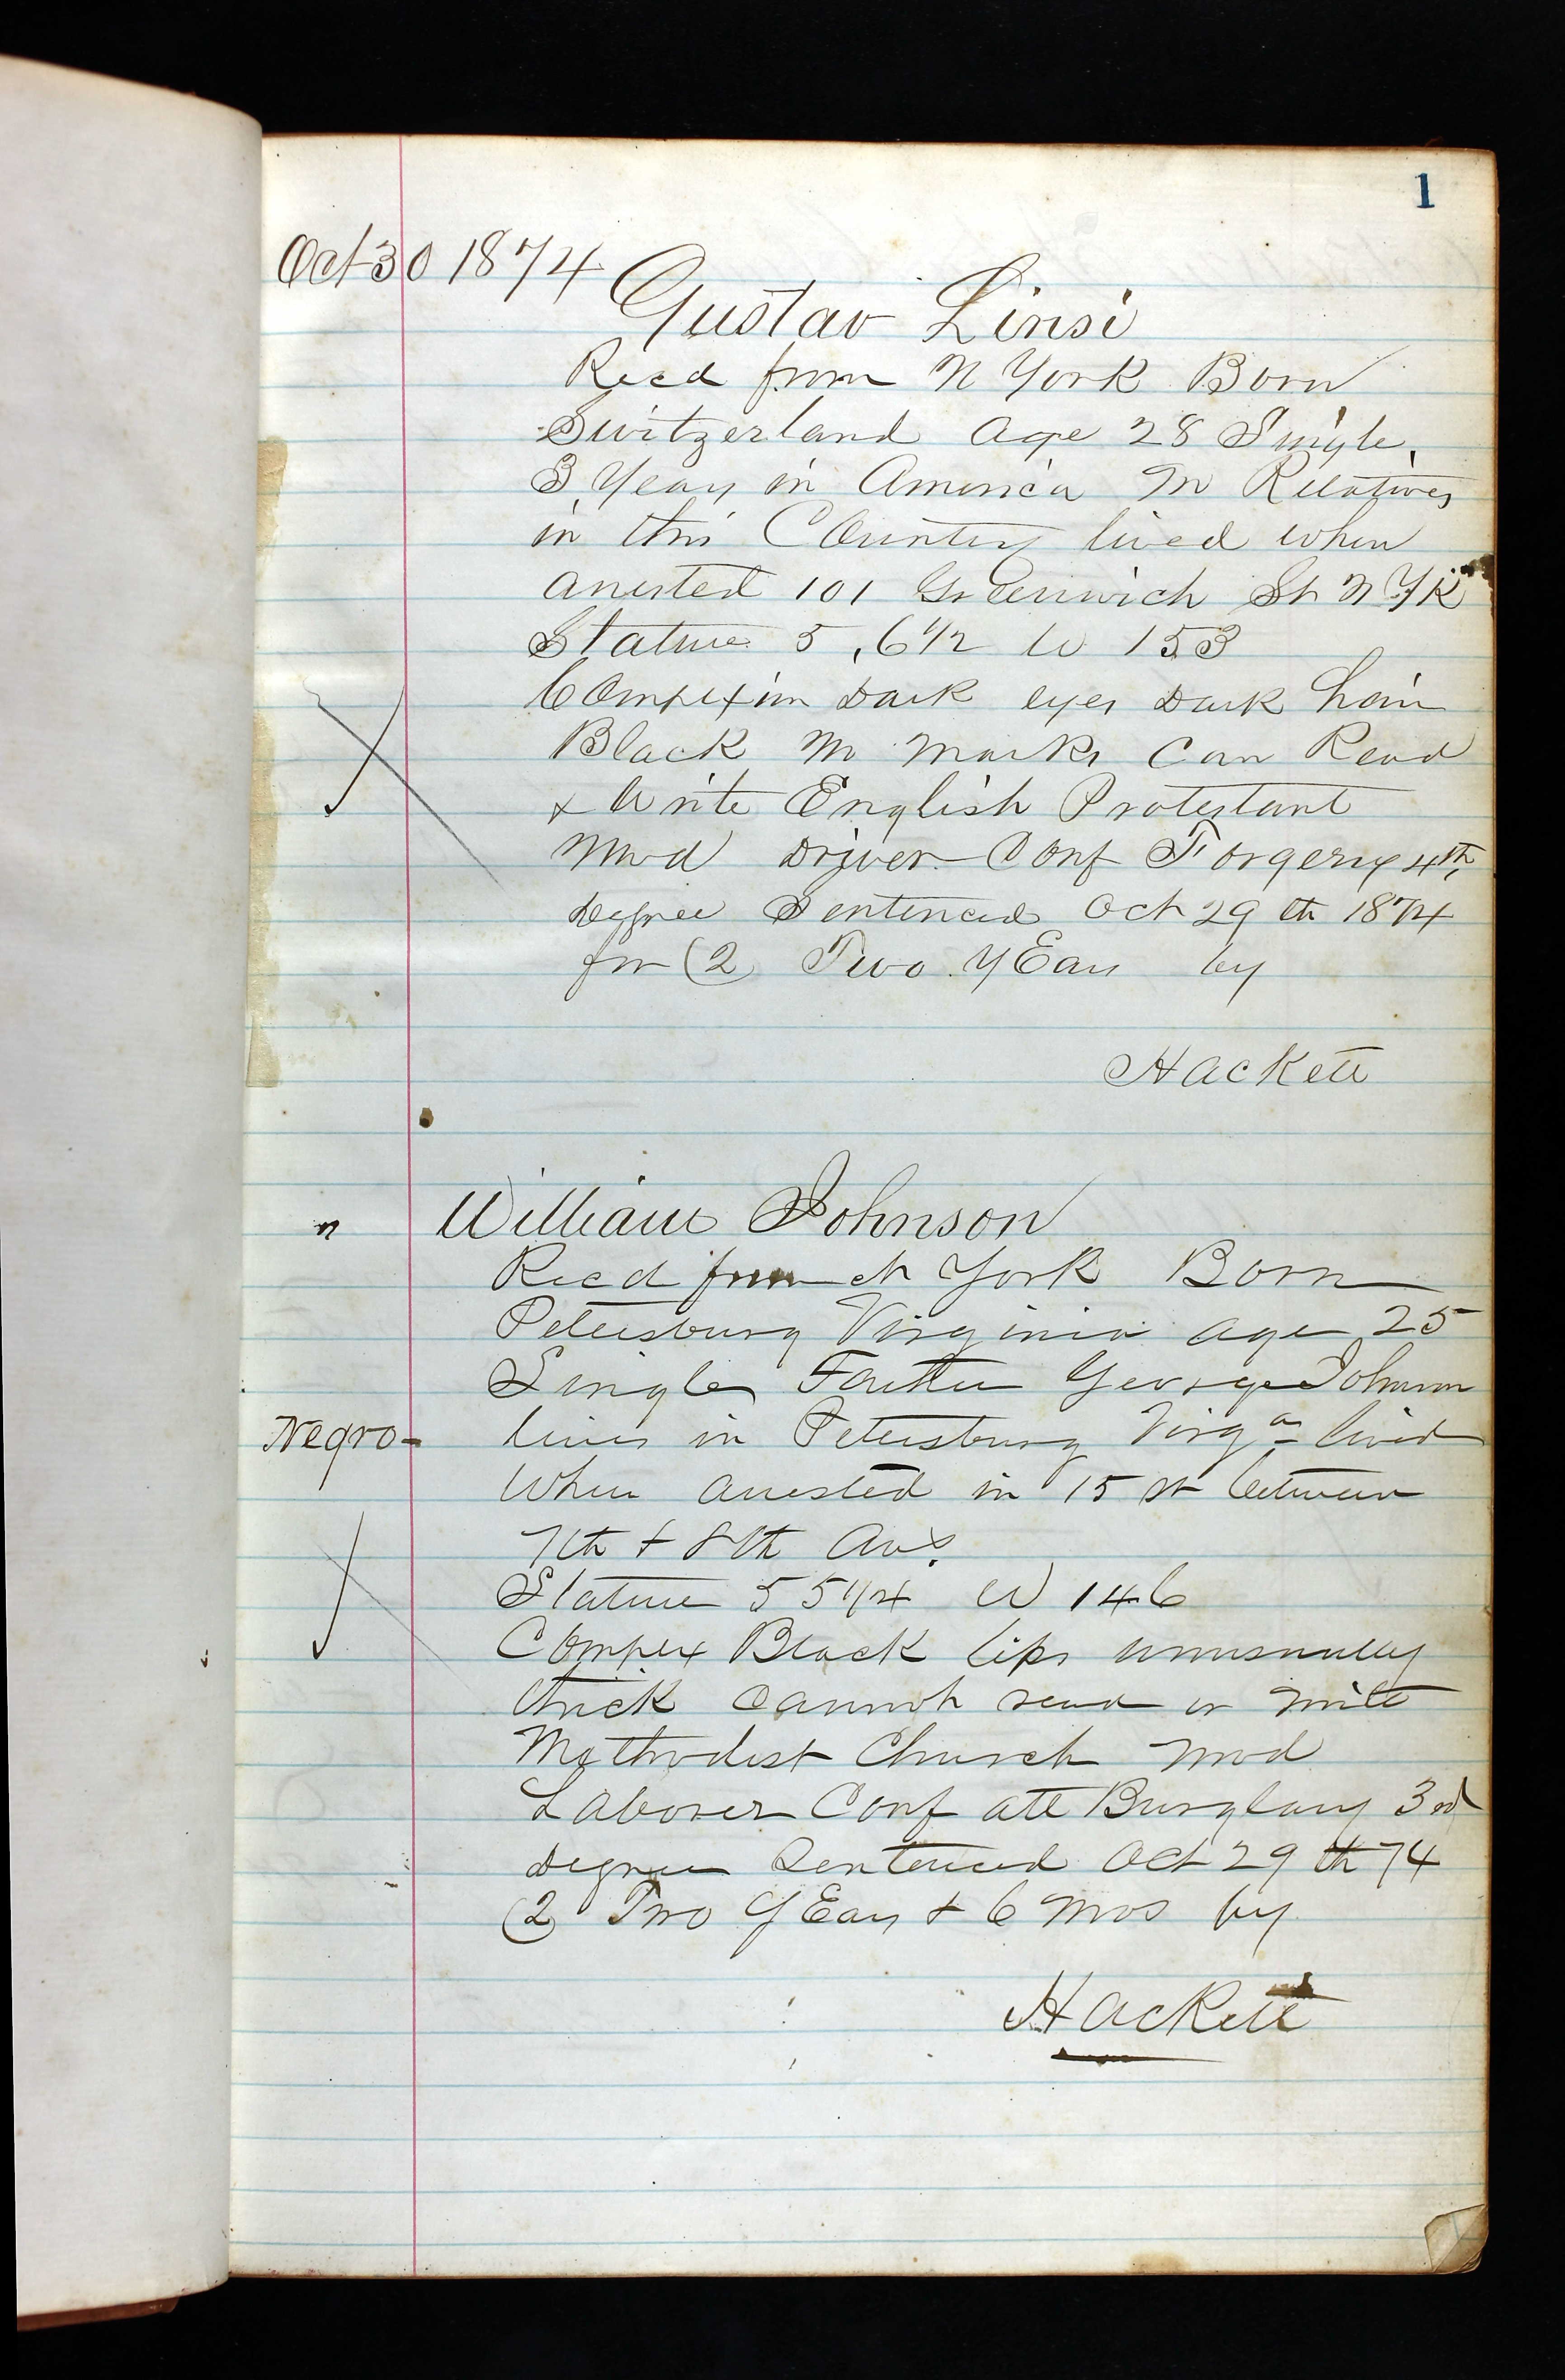 1
Oct 30 1874
Gustav Linsi
Recd from N York Born
Switzerland Age 28 Single,
3 Years in America No Relatives
in this Country lived when
arrested 101 Greenwich St N YK
Stature 5, 6 1/2 W 153
Complexion Dark eyes Dark hair
Black No Marks Can Read
+ Write English Protestant
Mod Driver Conf Forgery 4th
degree Sentenced Oct 29th 1874
for (2) Two YEars by
Hackett
" William Johnson
Recd from N York Born
Petersburg Virginia age 25
Single Father George Johnson
Negro- lives in Petersburg Virga lived
When arrested in 15 st between
7th + 8th Avs.
Stature 5 5 1/4 W 146
Complex Black lips unusually
thick Cannot read or write
Methodist Church Mod
Laborer Conf att Burglary 3rd
degree Sentenced Oct 29th 74
(2) Two YEars + 6 Mos by
Hackett